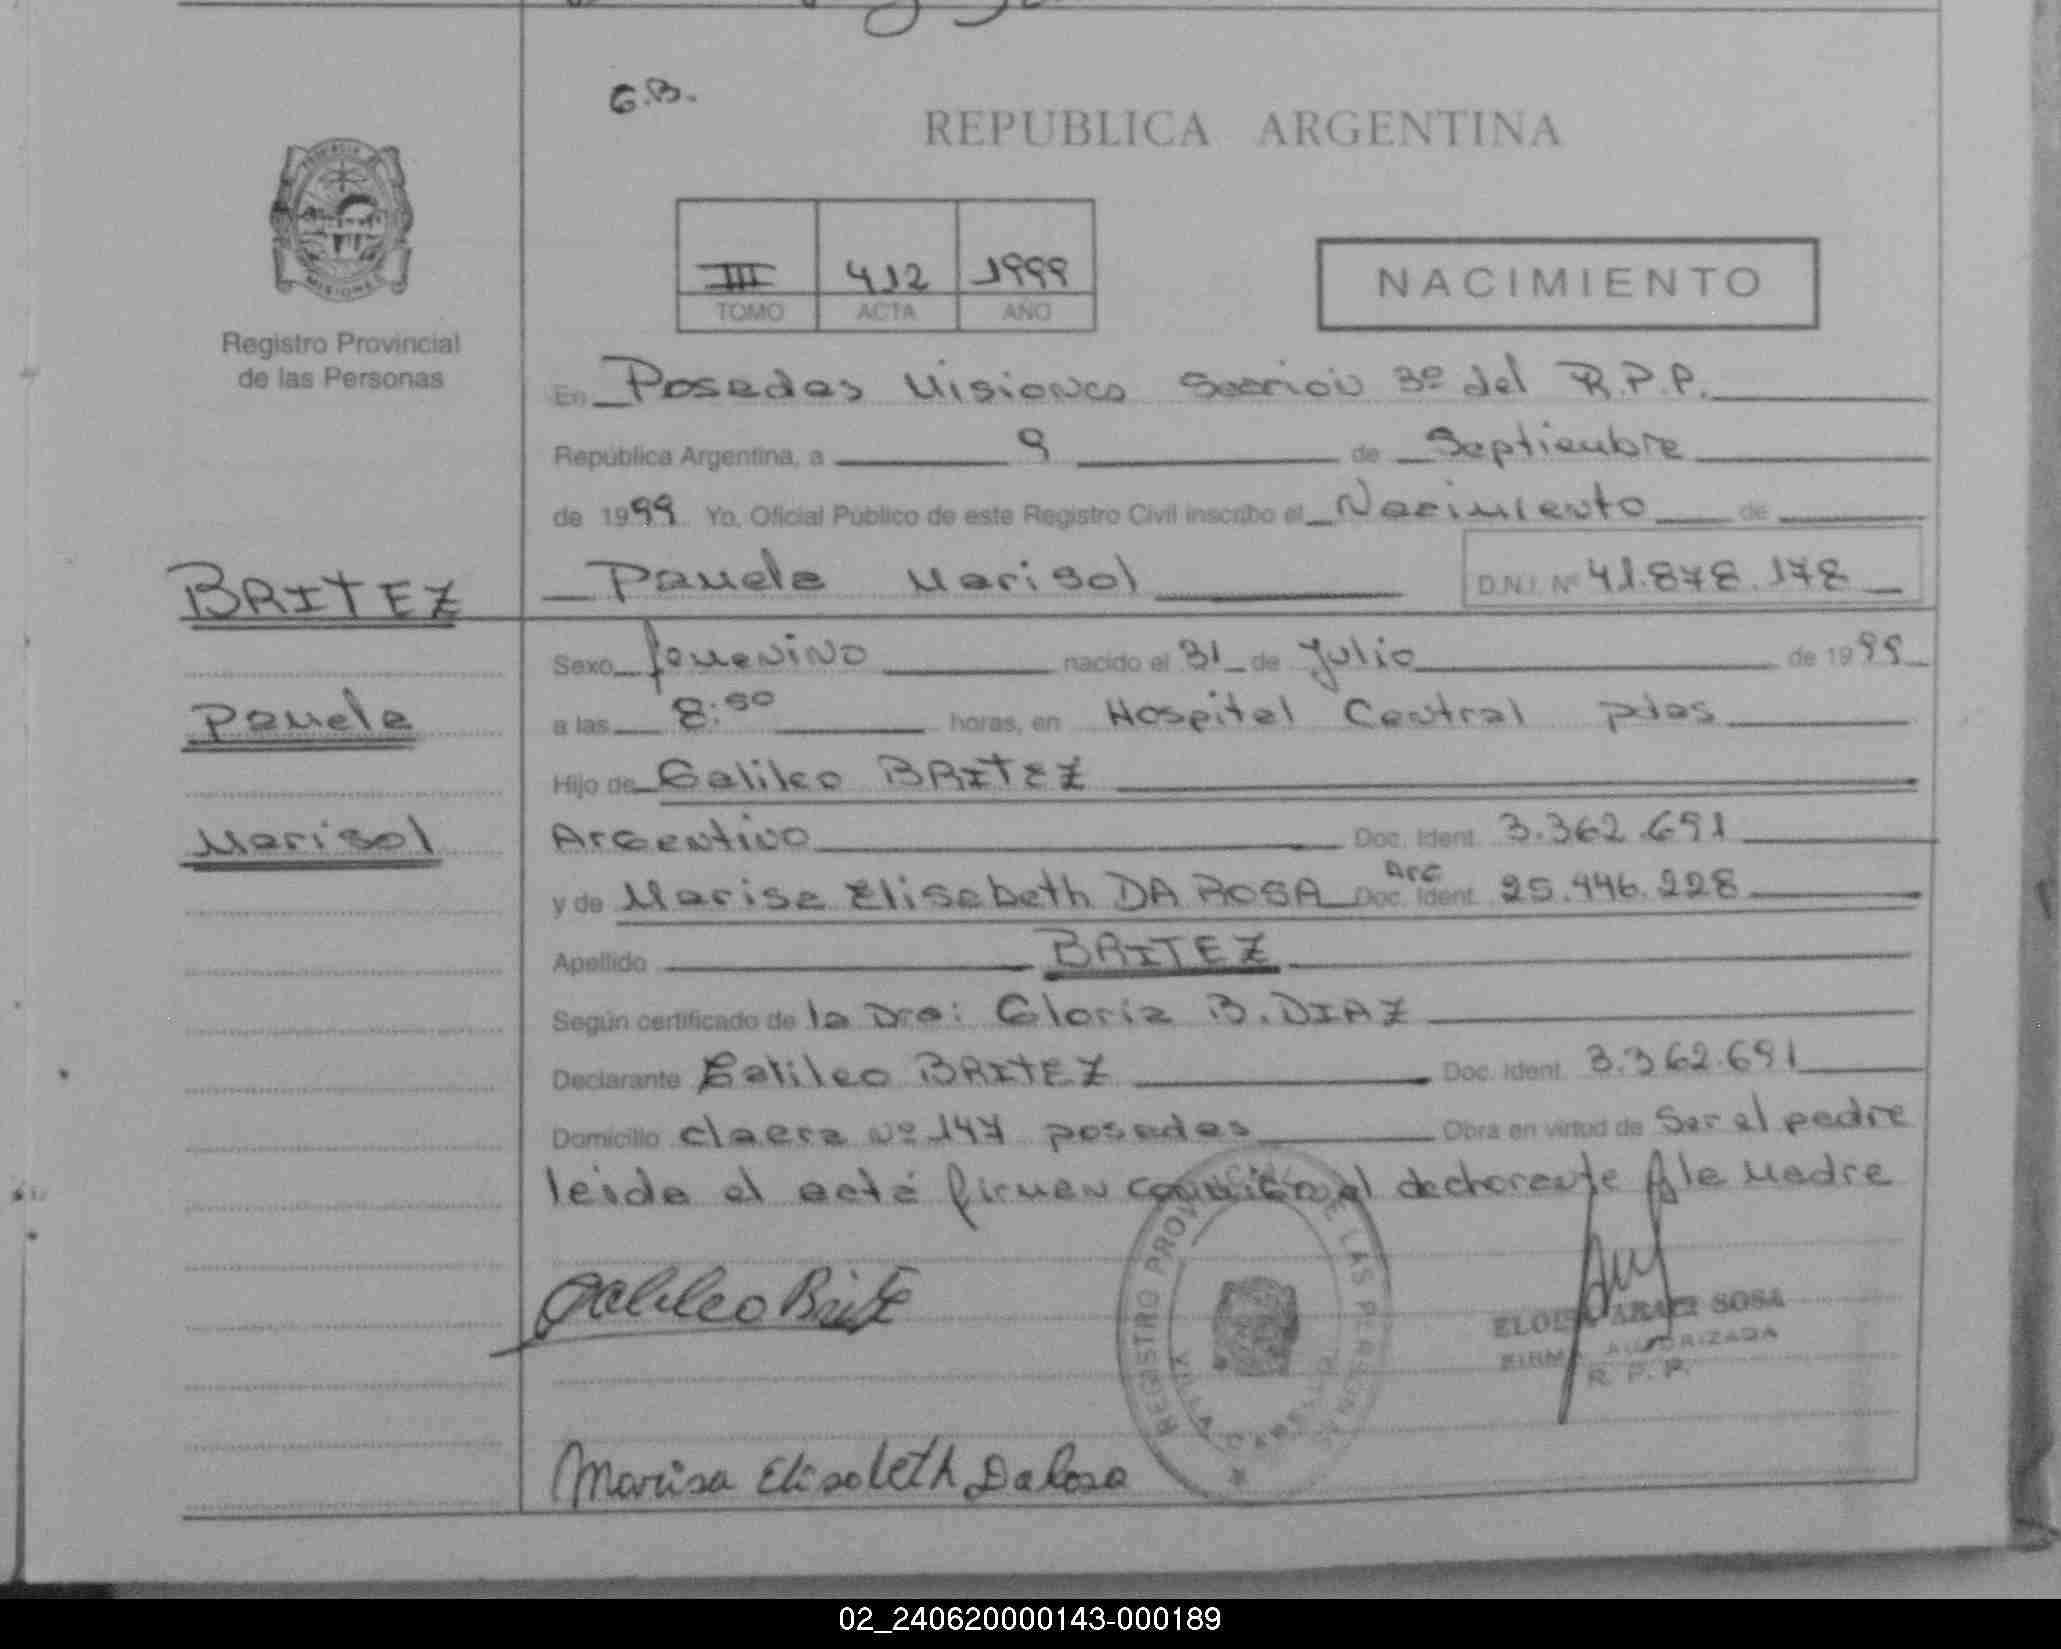 G.B.
REPUBLICA ARGENTINA
PROVINCIA DE
MISIONES
Registro Provincial
de las Personas
III 412 1999
TOMO ACTA AÑO
NACIMIENTO
En Posadas Misiones Sección 3º del R.P.P.
República Argentina, a 9 de Septiembre
de 1999 Yo, Oficial Público de este Registro Civil inscribo el Nacimiento de
BRITEZ
Pamela Marisol D.N.I. Nº 41.878.178
Sexo femenino nacido el 31 de Julio de 1999
Pamela
a las 8:50 horas, en Hospital Central pdas
Hijo de Galileo BRITEZ
Marisol
Argentino Doc. Ident. 3.362.691
y de Marisa Elisabeth DA ROSA Arg Doc. Ident. 25.446.228
Apellido BRITEZ
Según certificado de la Dra: Gloria B. DIAZ
Declarante Galileo BRITEZ Doc. Ident. 3.362.691
Domicilio claera Nº 147 posadas Obra en virtud de Ser el padre
leida el acta firman conmigo el declarante y la madre
REGISTRO PROVINCIAL DE LAS PERSONAS
VILLA CABELLO
Galileo Britez
SOSA
FIRMA AUTORIZADA
R. P. P.
Marisa Elisabeth Da Rosa
02_240620000143-000189